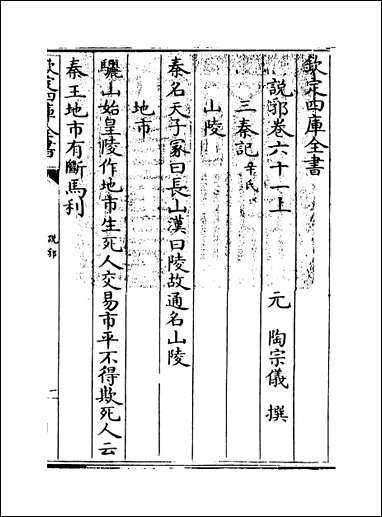 欽定四庫全書
說郛卷六十一上
元 陶宗儀 撰
三秦記 辛氏
山陵
秦名天子冢曰長山漢曰陵故通名山陵
地市
驪山始皇陵作地市生死人交易市平不得欺死人云
秦王地市有斷馬利
欽定四庫全書
說郛